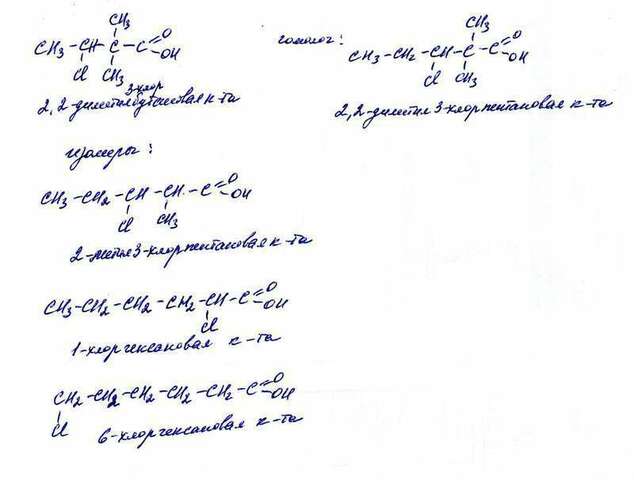 CH₃
CH₃ - CH - C - C = O
OH
Cl CH₃
3-хлор
2,2-диметилбутановая к-та
гомолог:
CH₃
CH₃ - CH₂ - CH - C - C = O
OH
Cl CH₃
2,2-диметил 3-хлорпентановая к-та
изомеры:
CH₃ - CH₂ - CH - CH - C = O
OH
Cl CH₃
2-метил 3-хлорпентановая к-та
CH₃ - CH₂ - CH₂ - CH₂ - CH - C = O
OH
Cl
1-хлоргексановая к-та
CH₂ - CH₂ - CH₂ - CH₂ - CH₂ - C = O
OH
Cl
6-хлоргексановая к-та